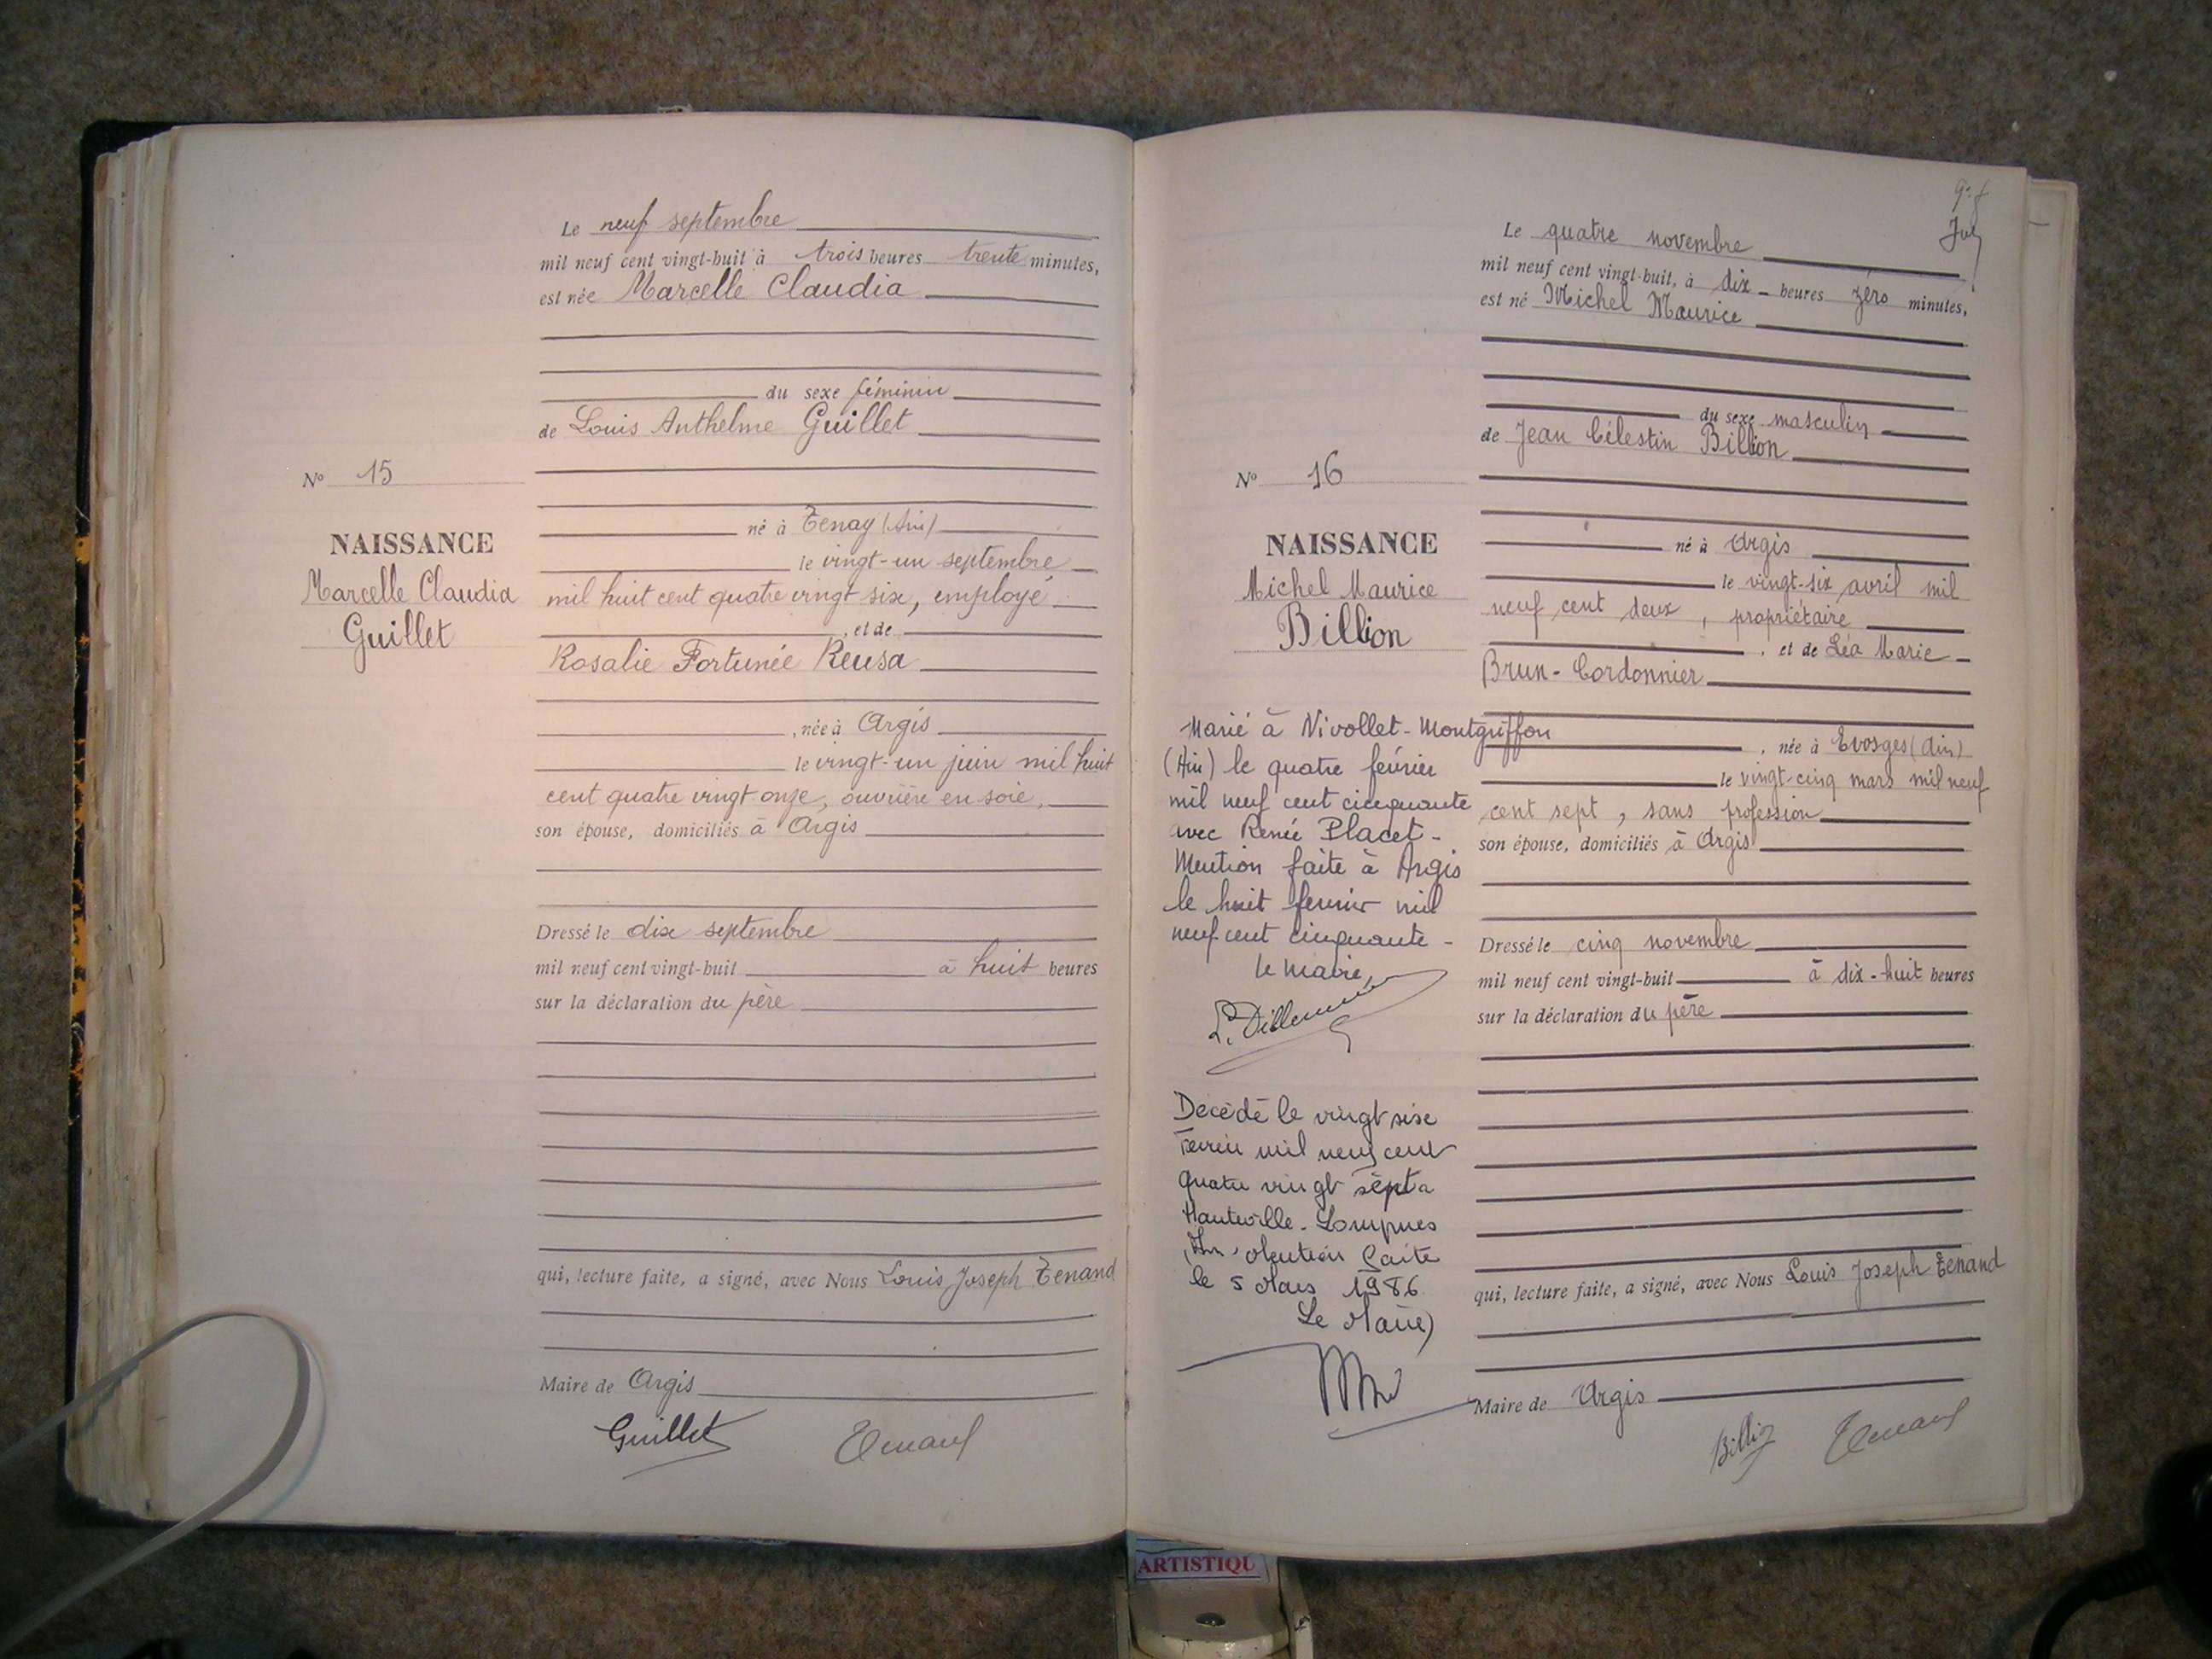 Le neuf septembre
mil neuf cent vingt-huit à trois heures trente minutes,
est née Marcelle Claudia
du sexe féminin
de Louis Anthelme Guillet
né à Tenay (Ain)
le vingt-un septembre
mil huit cent quatre vingt six, employé
, et de
Rosalie Fortunée Reusa
, née à Argis
le vingt-un juin mil huit
cent quatre vingt onze, ouvrière en soie,
son épouse, domiciliés à Argis
Dressé le dix septembre
mil neuf cent vingt-huit à huit heures
sur la déclaration du père
qui, lecture faite, a signé, avec Nous Louis Joseph Tenand
Maire de Argis
Guillet Tenand
No 15
NAISSANCE
Marcelle Claudia
Guillet
Le quatre novembre
mil neuf cent vingt-huit, à dix heures zéro minutes,
est né Michel Maurice
du sexe masculin
de Jean Célestin Billion
né à Argis
le vingt-six avril mil
neuf cent deux, propriétaire
, et de Léa Marie
Brun-Cordonnier
, née à Evosges (Ain)
le vingt-cinq mars mil neuf
cent sept, sans profession
son épouse, domiciliés à Argis
Dressé le cinq novembre
mil neuf cent vingt-huit à dix-huit heures
sur la déclaration du père
qui, lecture faite, a signé, avec Nous Louis Joseph Tenand
Maire de Argis
Billion Tenand
No 16
NAISSANCE
Michel Maurice
Billion
Marié à Nivollet-Montgriffon
(Ain) le quatre février
mil neuf cent cinquante
avec Renée Placet -
Mention faite à Argis
le huit février mil
neuf cent cinquante -
le maire,
Décédé le vingt sise
Fevrier mil neuf cent
quatre vingt sept a
Hauteville-Lompnes
Ain, Mention faite
le 5 Mars 1986
Le Maire
ARTISTIQU